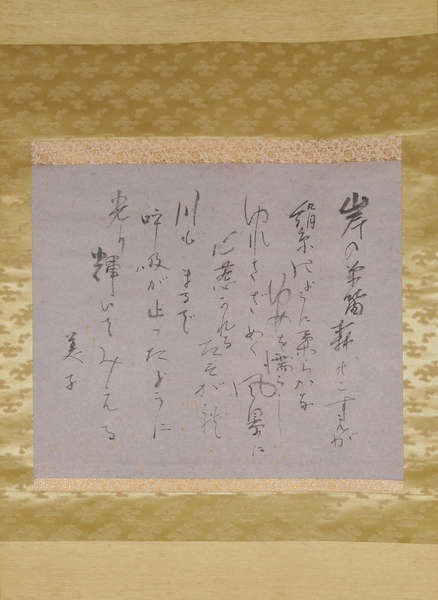 岸の草笛
絹糸のように柔らかな
ゆめを濡らし
ゆれさざめく風景に
心惹かれる たそがれ
川も まるで
呼吸が止ったように
光り輝いてみえる
美子